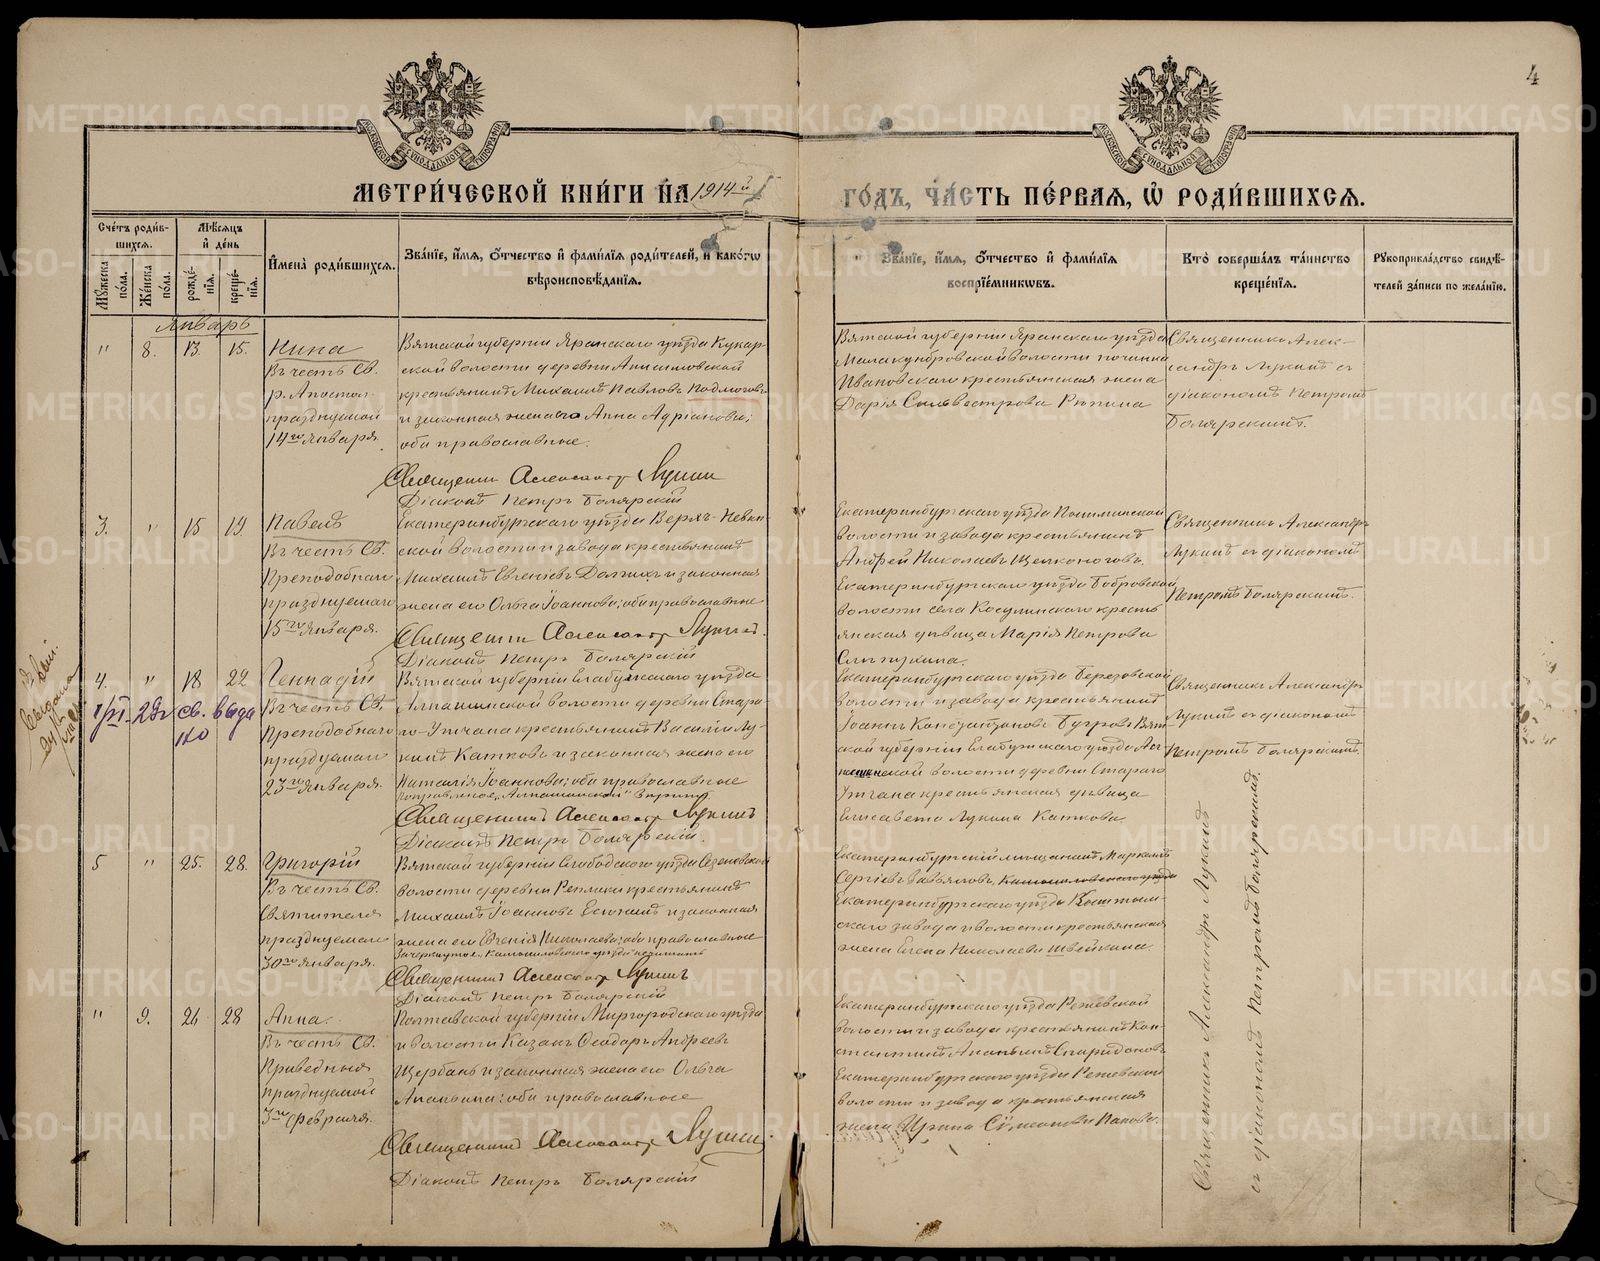 4
МЕТРИ́ЧЕСКОЙ КНИ́ГИ НА 1914 й
ГО́ДЪ, ЧА́СТЬ ПЕ́РВАЯ, Ѽ РОДИ́ВШИХСЯ.
Сче́тъ роди́вшихся.
Му́жеска по́ла.
Же́нска по́ла.
Мѣ́сяцъ и҆ де́нь
рожде́нїя.
креще́нїя.
И҆мена̀ роди́вшихся.
Зва́нїе, и҆́мя, ѻ҆́тчество и҆ фами́лїя роди́телей, и҆ како́гѡ вѣроисповѣ́данїя.
Зва́нїе, и҆́мя, ѻ҆́тчество и҆ фами́лїя воспрїе́мникѡвъ.
Кто̀ соверша́лъ та́инство креще́нїя.
Рꙋкоприкла́дство свидѣ́телей за́писи по жела́нїю.
Январь
" 8. 13. 15.
Нина
Въ честь Св.
р. Апостол.
празднуемой
14го Января.
Вятской губерніи Яранскаго уѣзда Кукар-
ской волости деревни Анисимовской
крестьянинъ Михаилъ Павловъ Подмоговъ
и законная жена его Анна Адріанова;
оба православные.
Священникъ Александръ Лукинъ
Діаконъ Петръ Боярскій
Вятской губерніи Яранскаго уѣзда
волости починка
Ивановскаго крестьянская жена
Дарія Сильвестрова Рѣпина
Священникъ Алек-
сандръ Лукинъ съ
діакономъ Петромъ
Боярскимъ.
3. " 15 19
Павелъ
Въ честь Св.
Преподобнаго
празднуемаго
15го Января.
Екатеринбургскаго уѣзда Верхъ-Невин-
ской волости и завода крестьянинъ
Михаилъ Евгеніевъ и законная
жена его Ольга Іоаннова; оба православные
Священникъ Александръ Лукинъ.
Діаконъ Петръ Боярскій
Екатеринбургскаго уѣзда
волости и завода крестьянинъ
Андрей Николаевъ Щелконоговъ.
Екатеринбургскаго уѣзда Бобровской
волости села Косулинскаго кресть-
янская дѣвица Марія Петрова
Священникъ Александръ
Лукинъ съ діакономъ
Петромъ Боярскимъ.
4. " 18 22
Геннадій
Въ честь Св.
Преподобнаго
празднуемаго
23го Января.
29г св. выда
но
Вятской губерніи Елабужскаго уѣзда
волости деревни Стара-
го-Утчана крестьянинъ Василій Лу-
кинъ Катковъ и законная жена его
Наталія Іоаннова; оба православные
Священникъ Александръ Лукинъ
Діаконъ Петръ Боярскій.
Екатеринбургскаго уѣзда Березовской
волости и завода крестьянинъ
Іоаннъ Константиновъ Бугровъ Вят-
ской губерніи Елабужскаго уѣзда
волости деревни Стараго
Утчана крестьянская дѣвица
Елисавета Лукина Каткова.
Священникъ Александръ
Лукинъ съ діакономъ
Петромъ Боярскимъ.
5 " 25. 28.
Григорій
Въ честь Св.
Святителя
празднуемаго
30го Января.
Вятской губерніи Слободского уѣзда Сезеневской
волости деревни крестьянинъ
Михаилъ Іоанновъ и законная
жена его Евгенія Николаева; оба православные
Зачеркнутое "Камышловскаго уѣзда" не читать
Священникъ Александръ Лукинъ
Діаконъ Петръ Боярскій
Екатеринбургскій мѣщанинъ Маркелъ
Сергіевъ Завьяловъ, Камышловскаго уѣзда
Екатеринбургскаго уѣзда
скаго завода и волости крестьянская
жена Елена Николаева Швейкина.
" 9. 26 28
Анна.
Въ честь Св.
Праведныя
празднуемой
3го Февраля.
Полтавской губерніи Миргородскаго уѣзда
и волости Казакъ Ѳеодоръ Андреевъ
Щербань и законная жена его Ольга
Ананьина; оба православные
Священникъ Александръ Лукинъ
Діаконъ Петръ Боярскій
Екатеринбургскаго уѣзда Режевской
волости и завода крестьянинъ Кон-
стантинъ Ананьинъ Спиридоновъ
Екатеринбургскаго уѣзда Режевской
волости и завода крестьянская
жена Ирина Сѵмеонова Панова.
Священникъ Александръ Лукинъ
съ діакономъ Петромъ Боярскимъ.
METRIKI.GASO-URAL.RU